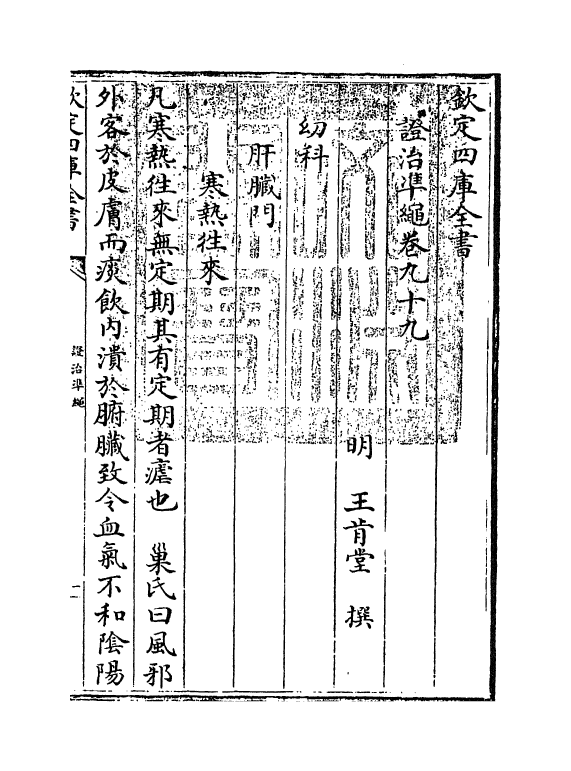 欽定四庫全書
證治凖繩卷九十九
明　王肯堂　撰
幼科
肝臟門
寒熱徃來
凡寒熱徃來無定期其有定期者瘧也　巢氏曰風邪
外客於皮膚而痰飲内潰於腑臟致令血氣不和隂陽
欽定四庫全書
證治凖繩
一